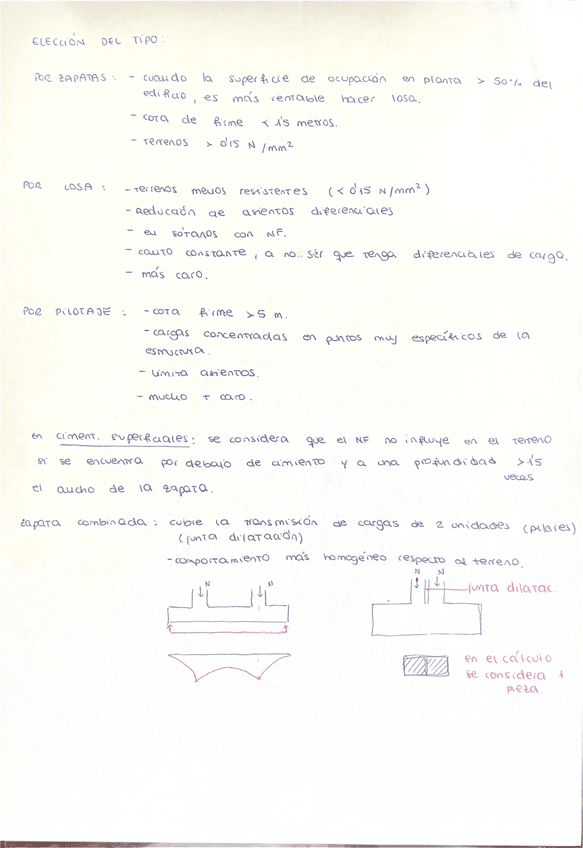 ELECCIÓN DEL TIPO:
POR ZAPATAS: - cuando la superficie de ocupación en planta > 50% del
edificio, es más rentable hacer losa.
- cota de firme < 1'5 metros.
- terrenos > 0'15 N/mm²
POR LOSA: - terrenos menos resistentes (< 0'15 N/mm²)
- Reducción de asientos diferenciales
- en sótanos con NF.
- canto constante, a no ser que tenga diferenciales de carga.
- más caro.
POR PILOTAJE: - cota firme > 5 m.
- cargas concentradas en puntos muy específicos de la
estructura.
- limita asientos.
- mucho + caro.
en ciment. superficiales: se considera que el NF no influye en el terreno
si se encuentra por debajo de cimiento y a una profundidad > 1'5
veces
el ancho de la zapata.
zapata combinada: cubre la transmisión de cargas de 2 unidades (pilares)
(junta dilatación)
- comportamiento más homogéneo respecto al terreno.
N N N N
junta dilatac.
en el cálculo
se considera 1
pieza.